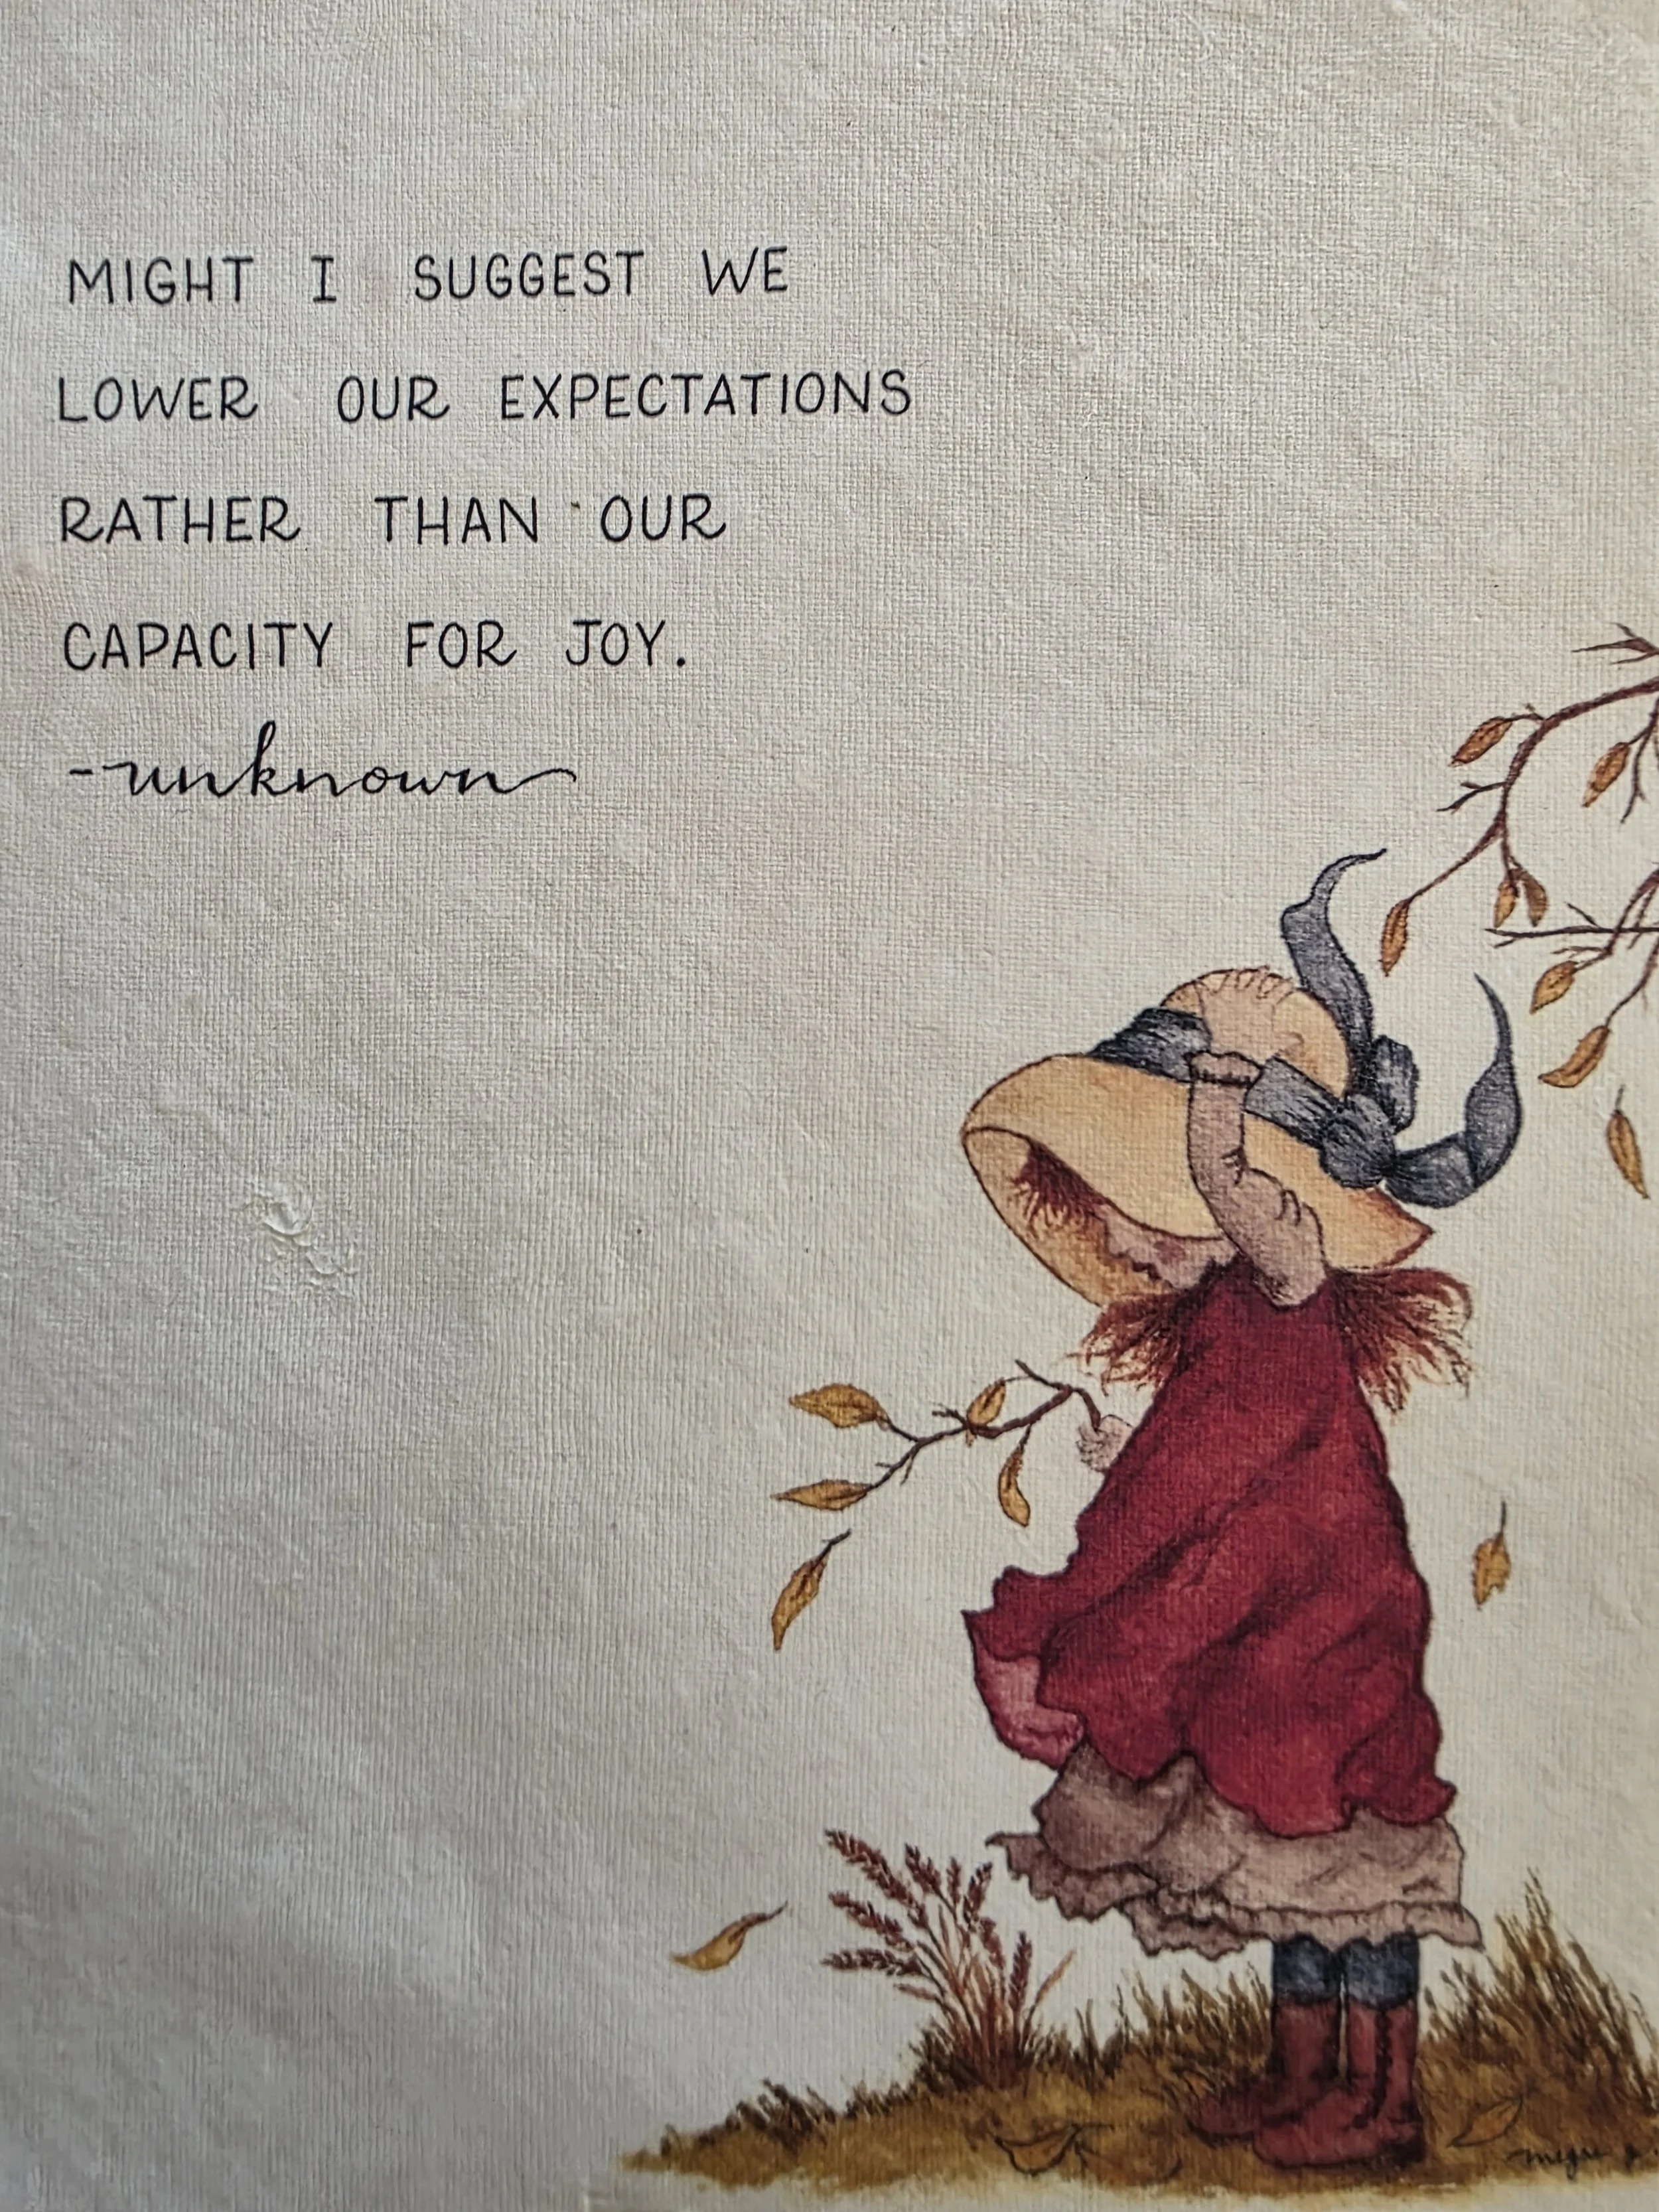 MIGHT I SUGGEST WE
LOWER OUR EXPECTATIONS
RATHER THAN OUR
CAPACITY FOR JOY.
-unknown